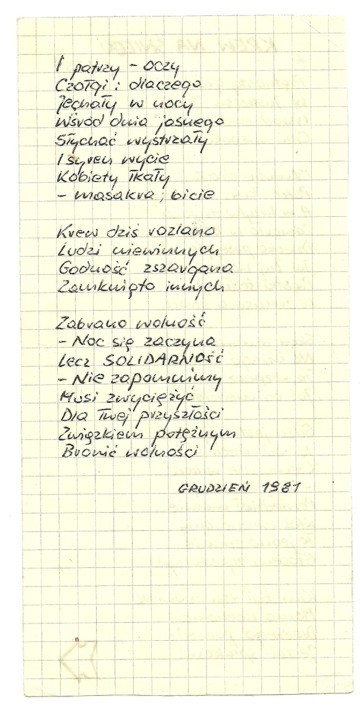 I patrzy - oczy
Czołgi: dlaczego
Jechały w nocy
Wśród dnia jasnego
Słychać wystrzały
I syren wycie
Kobiety łkały
- masakra, bicie
Krew dziś rozlano
Ludzi niewinnych
Godność zszargana
Zamknięto innych
Zabrano wolność
- Noc się zaczyna
Lecz SOLIDARNOŚĆ
- Nie zapomnimy
Musi zwyciężyć
Dla Twej przyszłości
Związkiem potężnym
Bronić wolności
GRUDZIEŃ 1981